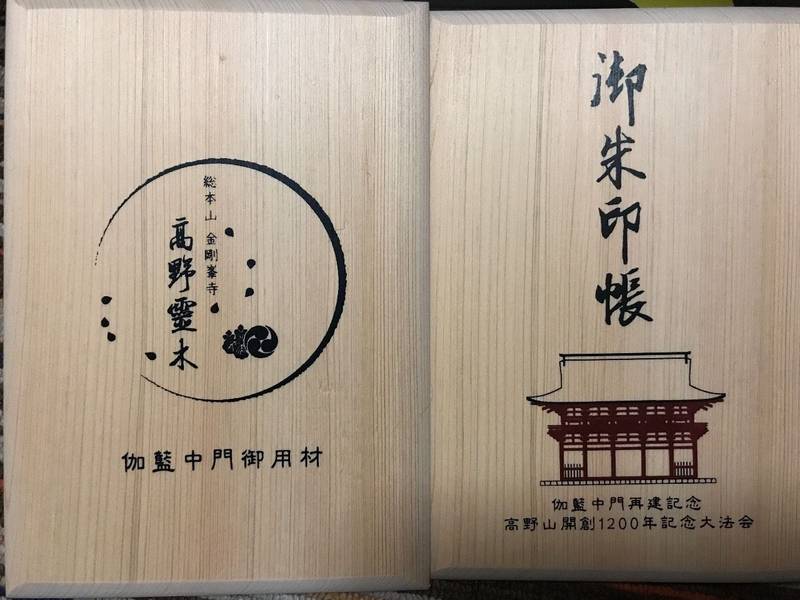 総本山 金剛峯寺
高野霊木
伽藍中門御用材
御朱印帳
伽藍中門再建記念
高野山開創1200年記念大法会